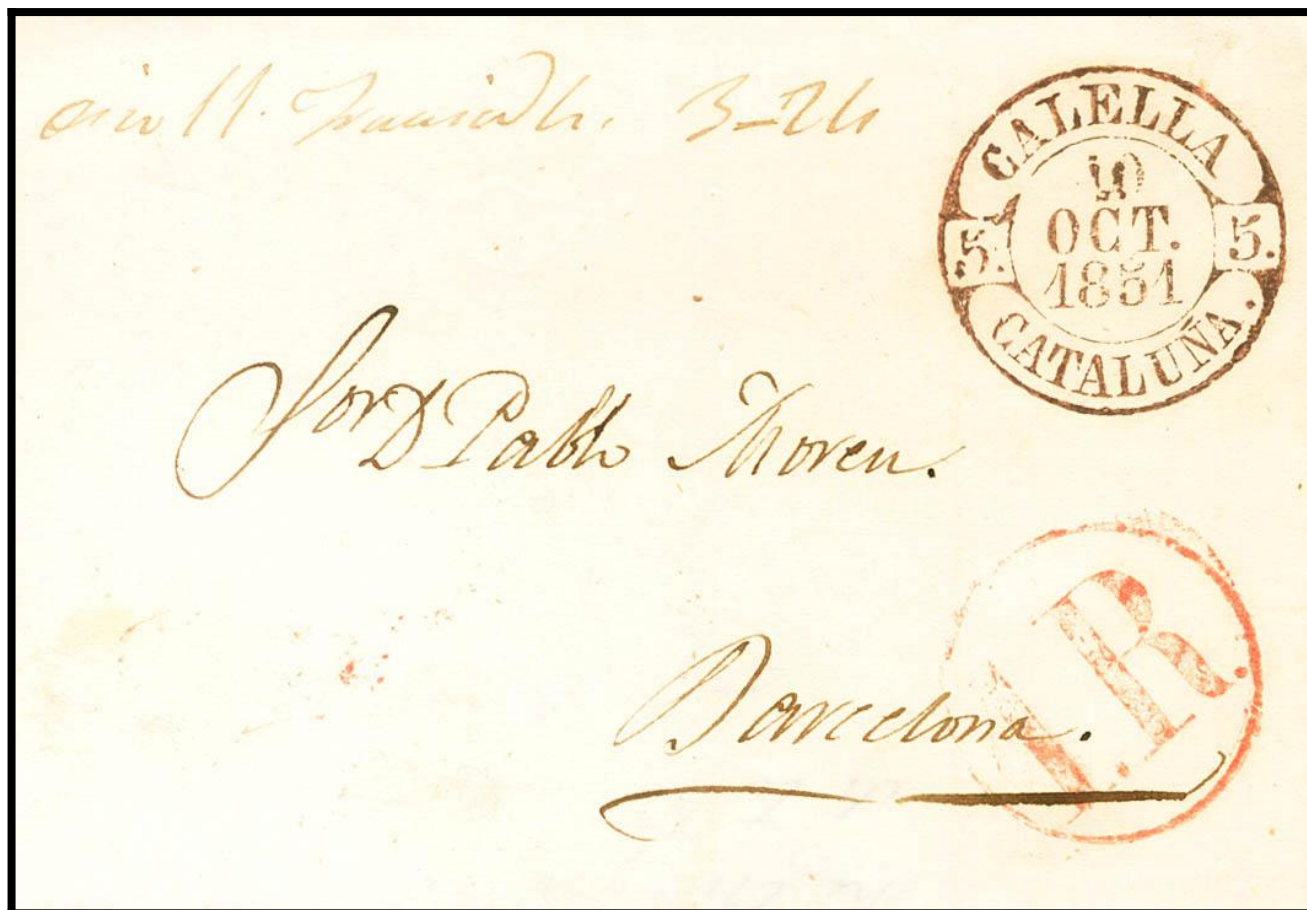 3-24
CALELLA
10
OCT.
1851
5. 5.
CATALUÑA.
Sor D Pablo Thoreu.
1R.
Barcelona.